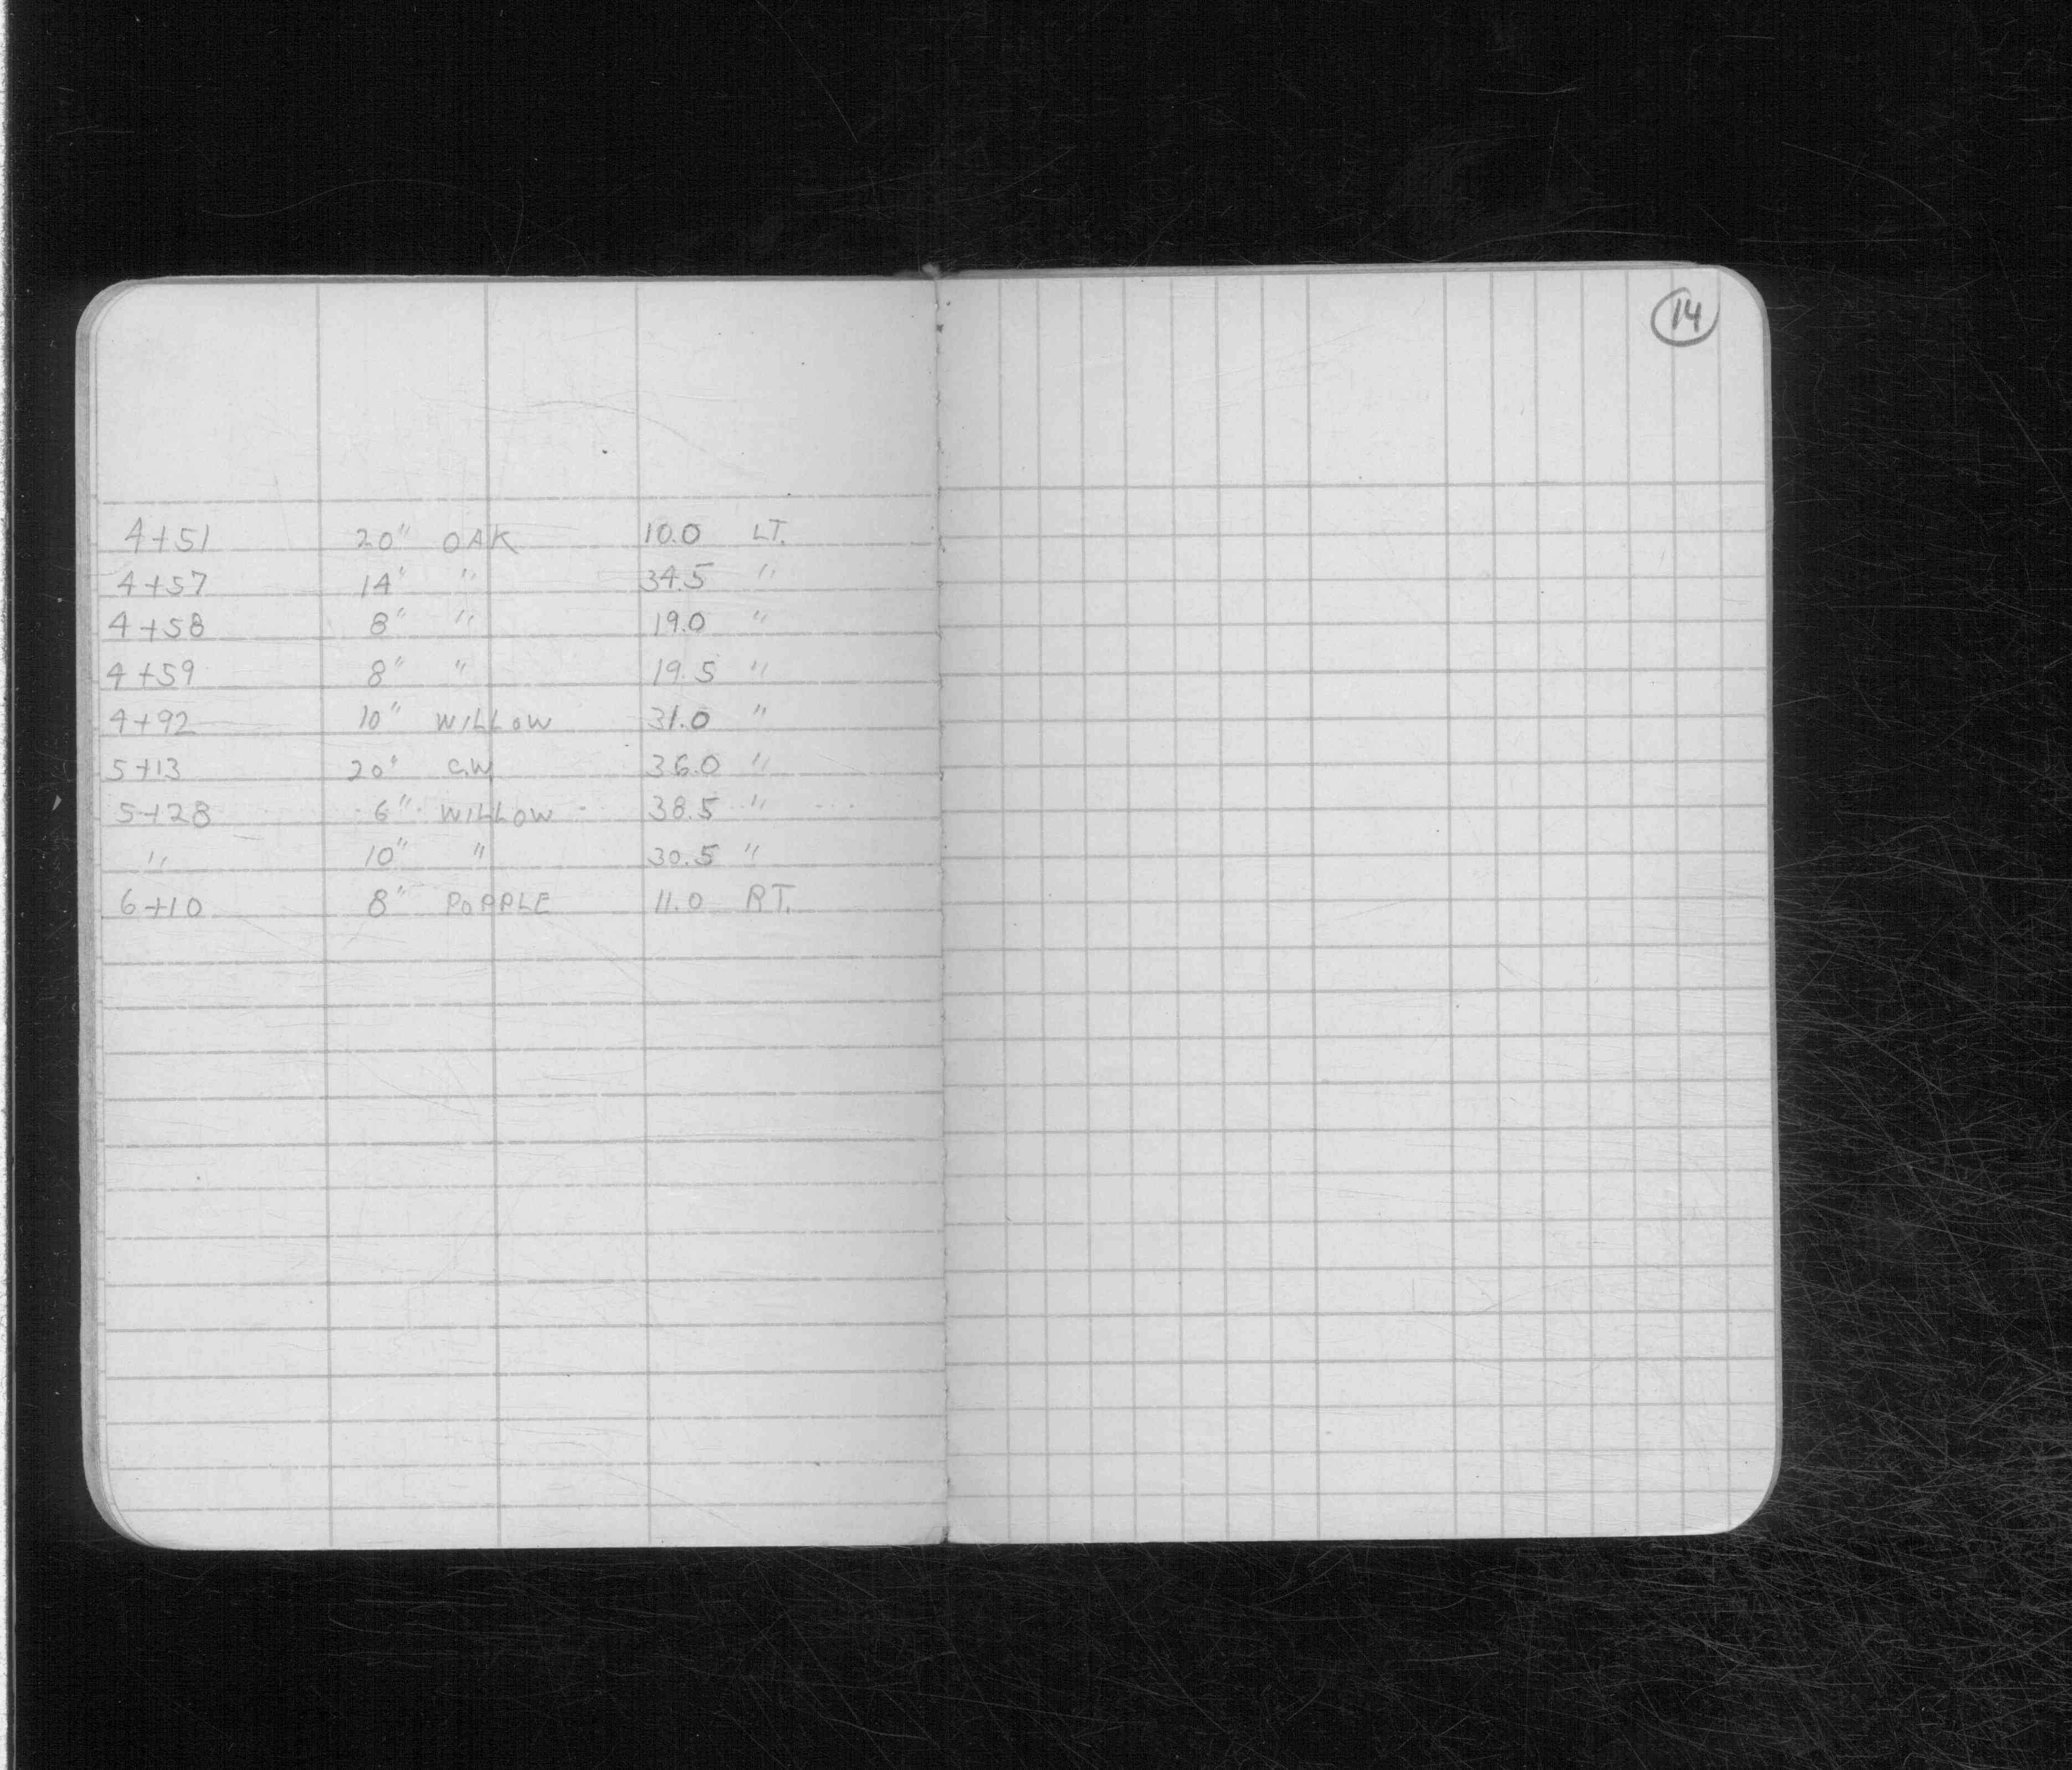 14
4+51 20" OAK 10.0 LT.
4+57 14" " 34.5 "
4+58 8" " 19.0 "
4+59 8" " 19.5 "
4+92 10" WILLOW 31.0 "
5+13 20" C.W 36.0 "
5+28 6" WILLOW 38.5 "
" 10" " 30.5 "
6+10 8" POPPLE 11.0 RT.